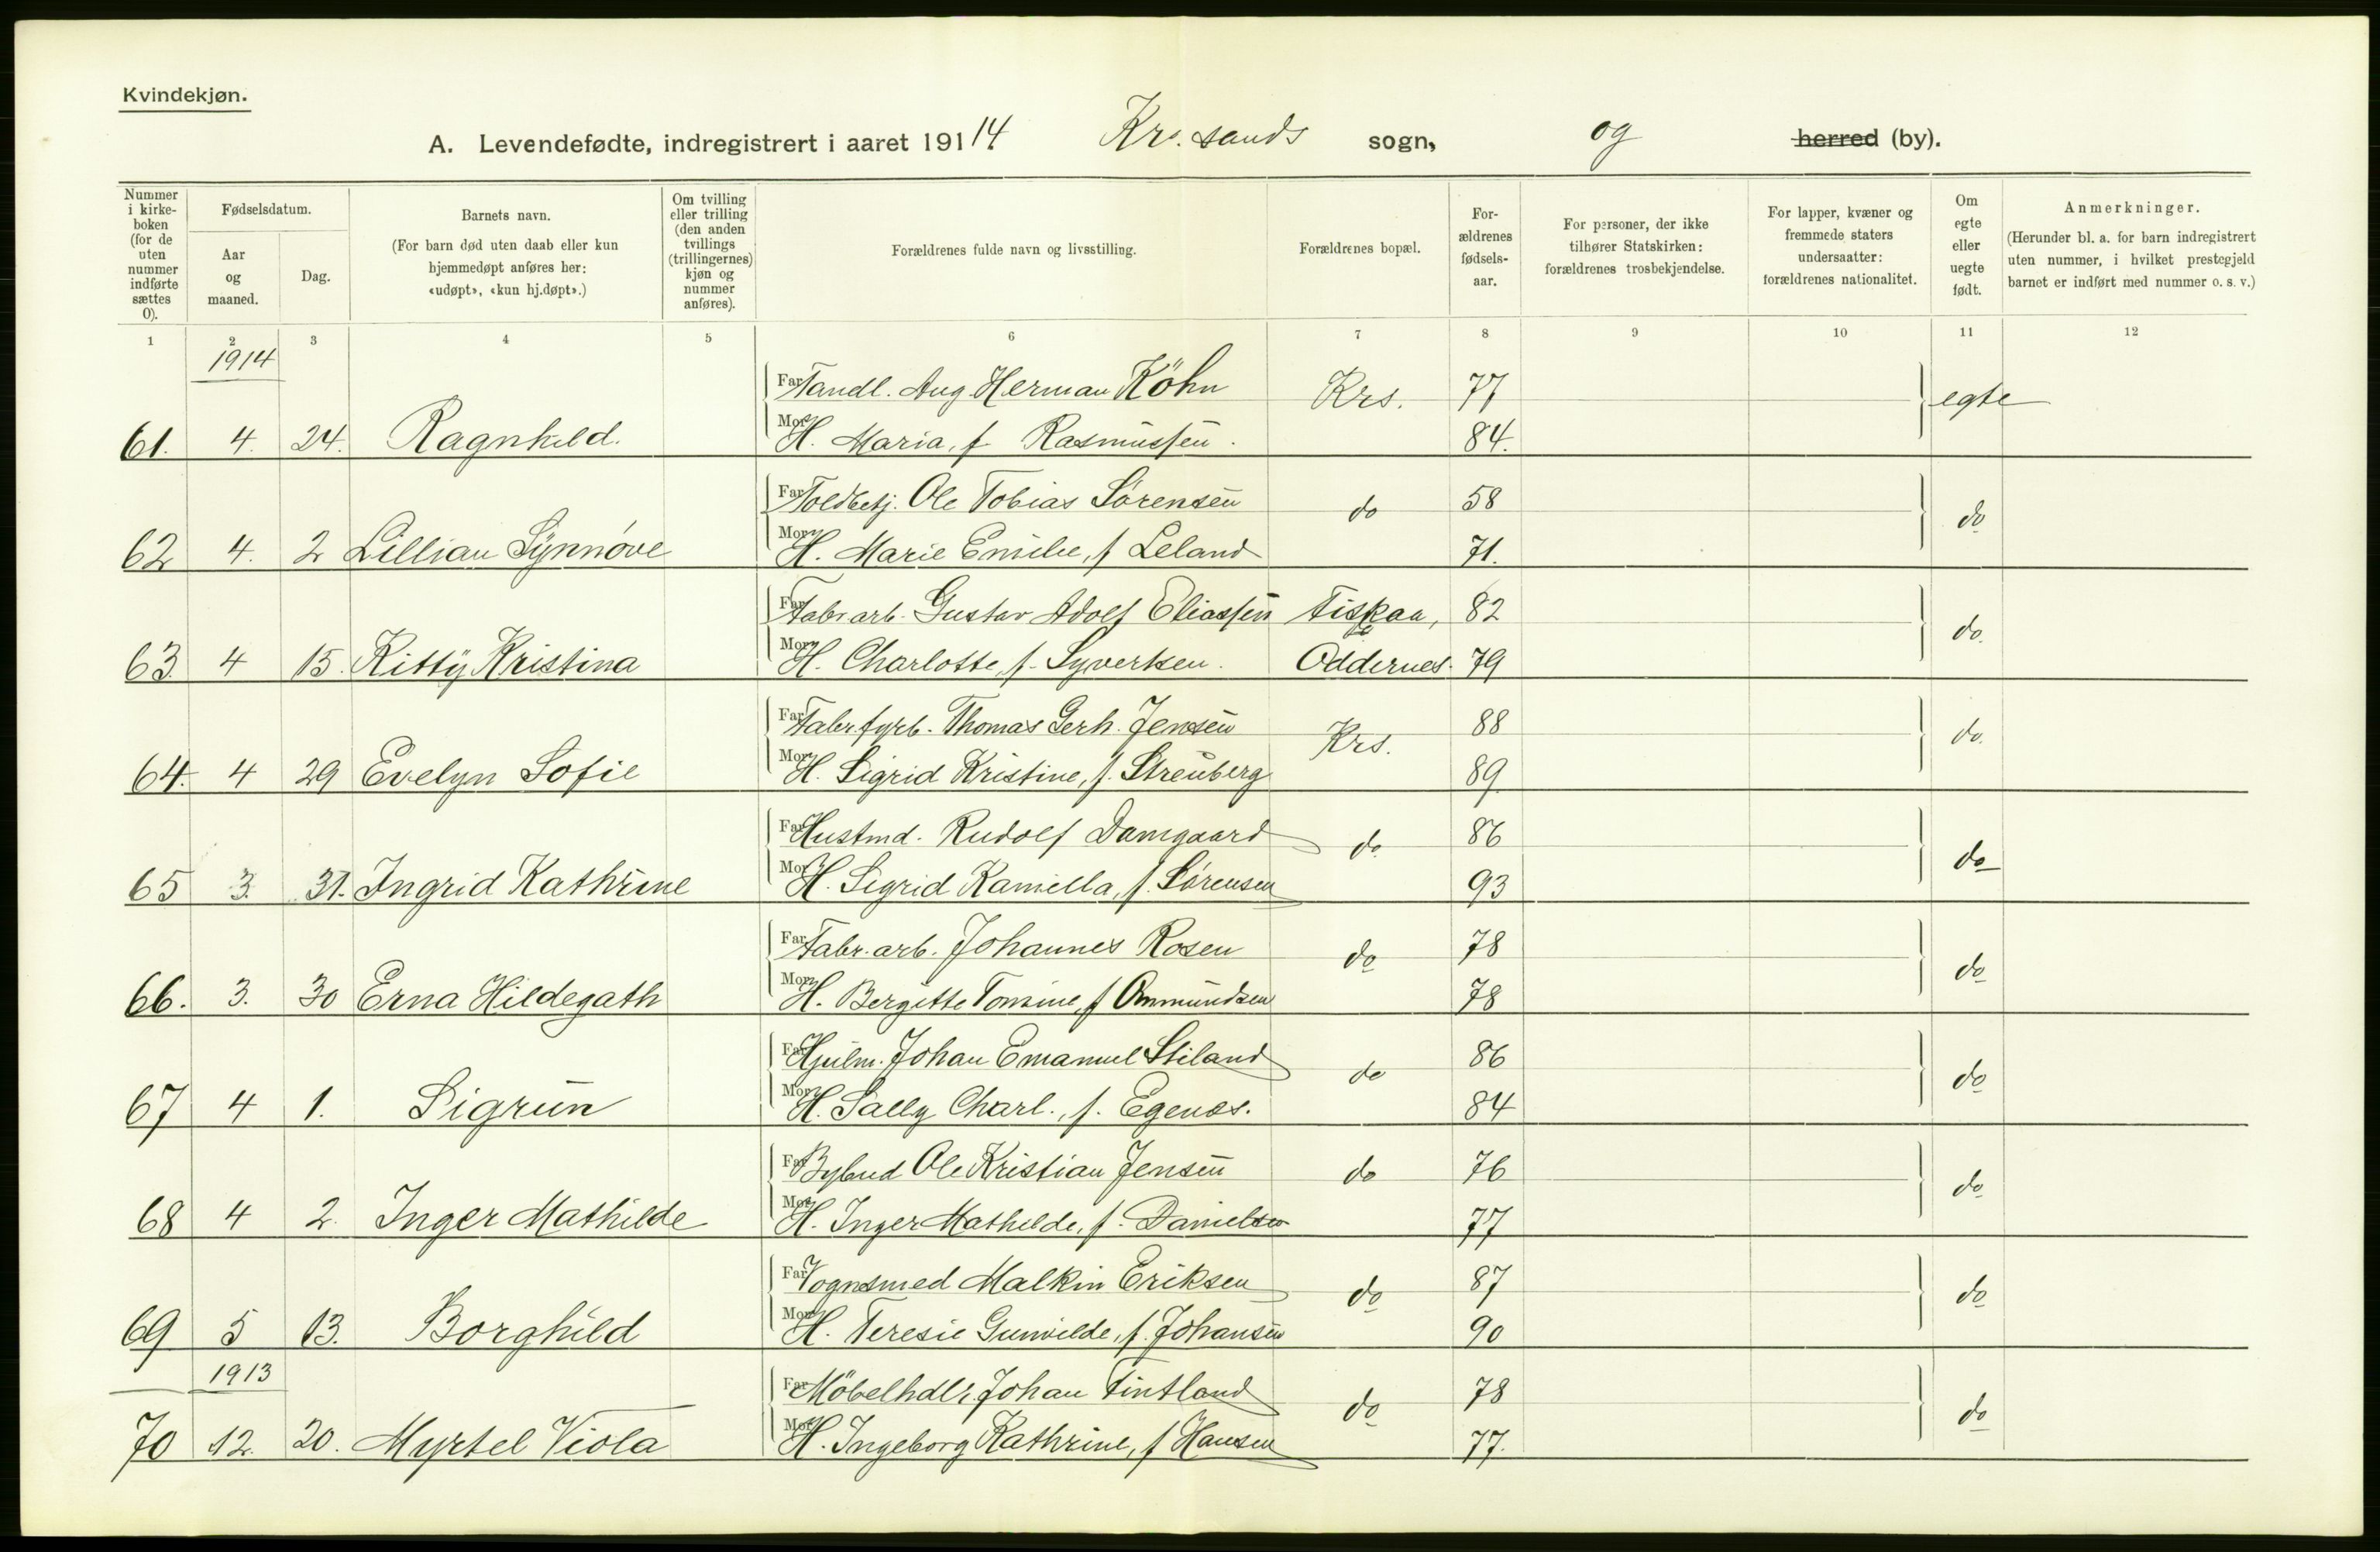 Kvindekjøn.
A. Levendefødte, indregistrert i aaret 19114 Krs.sands sogn, og herred (by).
Nummer i kirke-boken (for de uten nummer indførte sættes 0).
Fødselsdatum.
Aar og maaned.
Dag.
Barnets navn.
(For barn død uten daab eller kun hjemmedøpt anføres her: «udøpt», «kun hj.døpt».)
Om tvilling eller trilling (den anden tvillings (trillingernes) kjøn og nummer anføres).
Forældrenes fulde navn og livsstilling.
Forældrenes bopæl.
For-ældrenes fødsels-aar.
For personer, der ikke tilhører Statskirken: forældrenes trosbekjendelse.
For lapper, kvæner og fremmede staters undersaatter: forældrenes nationalitet.
Om egte eller uegte født.
Anmerkninger.
(Herunder bl. a. for barn indregistrert uten nummer, i hvilket prestegjeld barnet er indført med nummer o. s. v.)
1 2 3 4 5 6 7 8 9 10 11 12
1914
Far Tandl. Aug. Herman Köhn Krs. 77 egte
61. 4. 24. Ragnhild. Mor H. Maria, f. Rasmussen. 84.
Far Toldbetj. Ole Tobias Sørensen do 58 do
62 4. 2 Lillian Synnøve Mor H. Marie Emilie, f Leland 71.
Far Fabr.arb. Gustav Adolf Eliassen Fiskaa, 82 do.
63. 4 15. Kitty Kristina Mor H. Charlotte, f. Syvertsen. Oddernes. 79
Far Fabr.fyrb. Thomas Gerh. Jensen Krs. 88 do.
64. 4 29 Evelyn Sofie Mor H. Sigrid Kristine, f. Strenberg 89
Far Hustmd. Rudolf Damgaard do 86 do
65 3. 31. Ingrid Kathrine Mor H. Sigrid Kamilla, f. Sørensen 93
Far Fabr.arb. Johannes Rosen do 78 do
66. 3. 30 Erna Hildegath Mor H. Bergitte Tomine, f Ommundsen 78
Far Hjulm. Johan Emanuel Stiland do 86 do
67 4 1. Sigrun Mor H. Sally Charl., f. Egenes. 84
Far Bybud Ole Kristian Jensen do 76 do
68 4 2. Inger Mathilde Mor H. Inger Mathilde, f. Danielsen 77
Far Vognsmed Malkin Eriksen do 87 do
69 5 13. Borghild Mor H. Teresie Gunvilde, f. Johansen 90
1913
Far Möbelhdlr. Johan Fintland do 78 do
70 12. 20. Myrtel Viola Mor H. Ingeborg Kathrine, f Hansen 77.